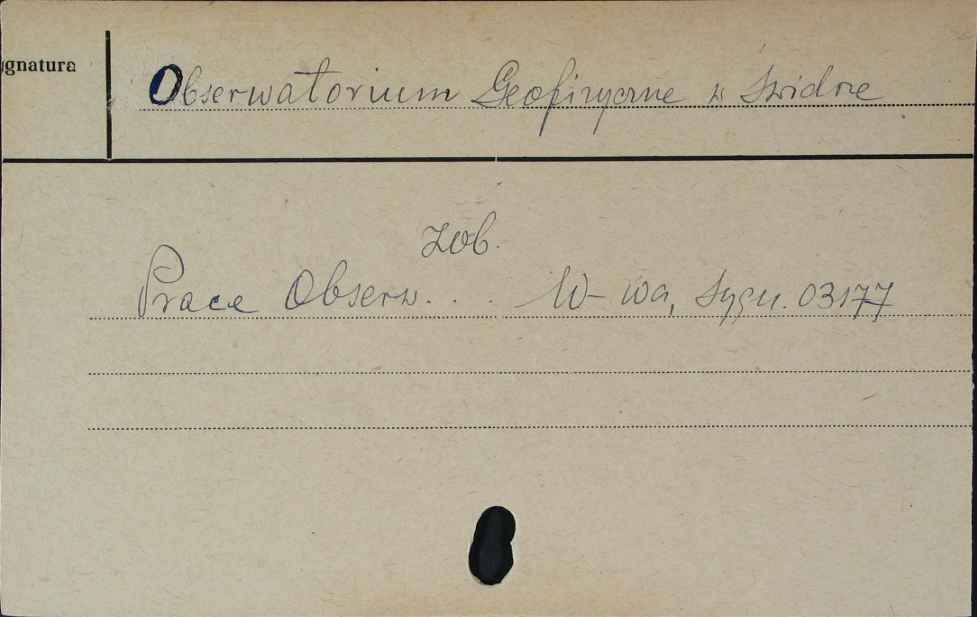 ygnatura
Obserwatorium Geofizyczne w Świdrze
Zob.
Prace Obserw. . . W-wa, Sygn. 03177